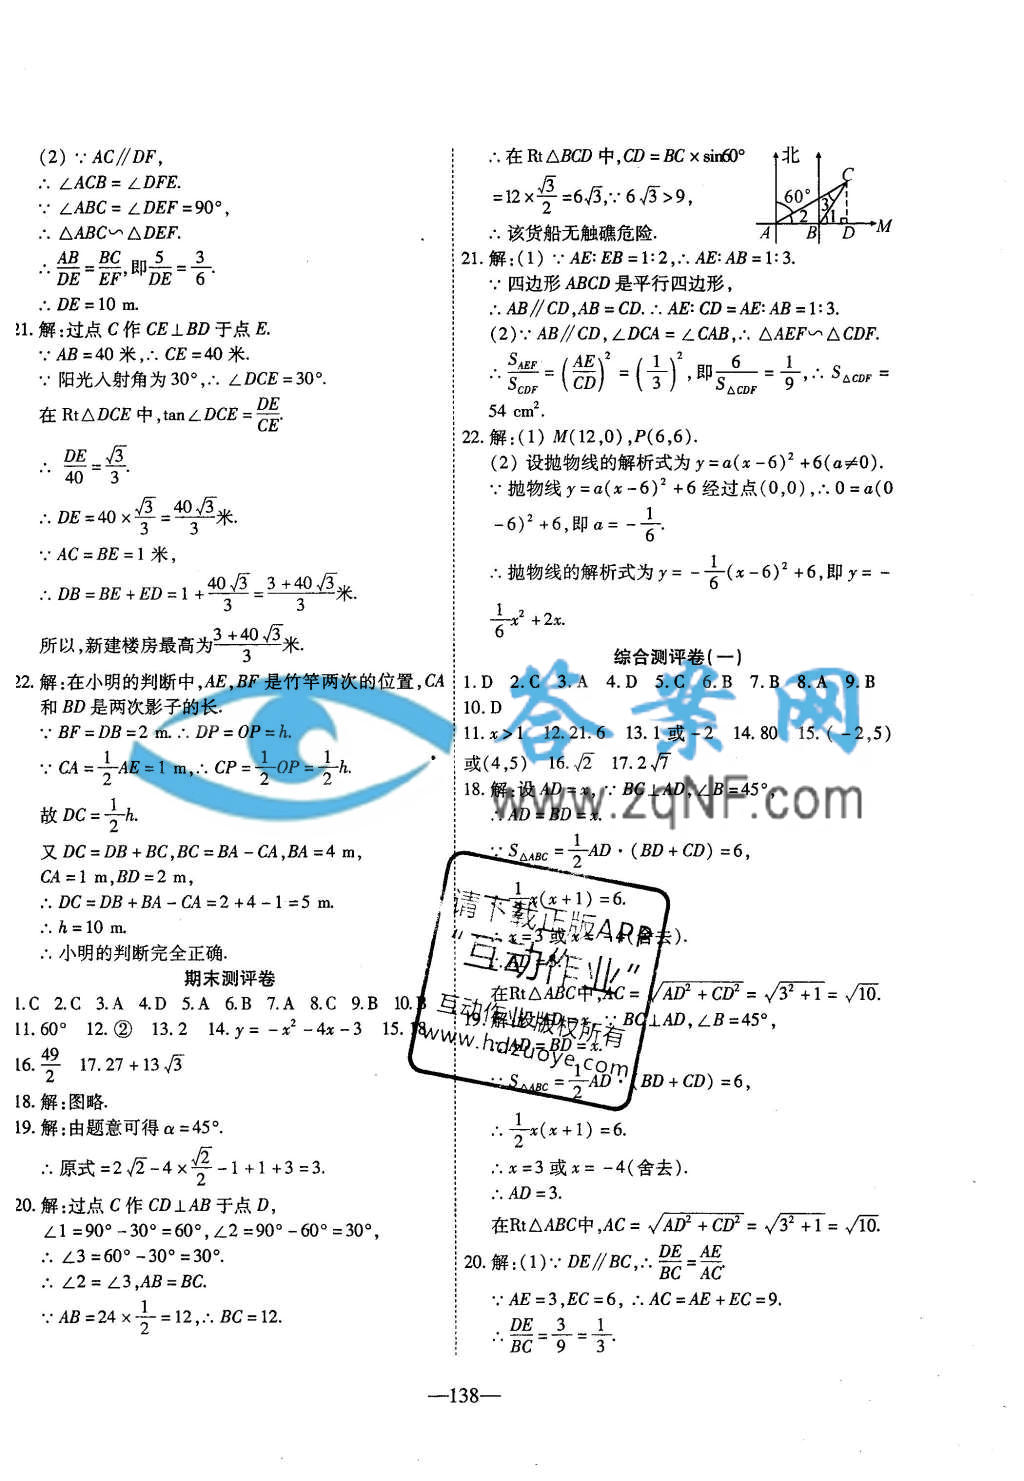 (2) ∵ AC∥DF,
∴ ∠ACB = ∠DFE.
∵ ∠ABC = ∠DEF = 90°,
∴ △ABC∽△DEF.
∴ AB/DE = BC/EF, 即 5/DE = 3/6.
∴ DE = 10 m.
21. 解:过点 C 作 CE⊥BD 于点 E.
∵ AB = 40 米,∴ CE = 40 米.
∵ 阳光入射角为 30°,∴ ∠DCE = 30°.
在 Rt△DCE 中,tan∠DCE = DE/CE.
∴ DE/40 = √3/3.
∴ DE = 40 × √3/3 = 40√3/3 米.
∵ AC = BE = 1 米,
∴ DB = BE + ED = 1 + 40√3/3 = (3 + 40√3)/3 米.
所以,新建楼房最高为 (3 + 40√3)/3 米.
22. 解:在小明的判断中,AE,BF 是竹竿两次的位置,CA
和 BD 是两次影子的长.
∵ BF = DB = 2 m. ∴ DP = OP = h.
∵ CA = 1/2 AE = 1 m,∴ CP = 1/2 OP = 1/2 h.
故 DC = 1/2 h.
又 DC = DB + BC,BC = BA - CA,BA = 4 m,
CA = 1 m,BD = 2 m,
∴ DC = DB + BA - CA = 2 + 4 - 1 = 5 m.
∴ h = 10 m.
∴ 小明的判断完全正确.
期末测评卷
1. C 2. C 3. A 4. D 5. A 6. B 7. A 8. C 9. B 10. B
11. 60° 12. ② 13. 2 14. y = -x² - 4x - 3 15. 18
16. 49/2 17. 27 + 13√3
18. 解:图略.
19. 解:由题意可得 α = 45°.
∴ 原式 = 2√2 - 4 × √2/2 - 1 + 1 + 3 = 3.
20. 解:过点 C 作 CD⊥AB 于点 D,
∠1 = 90° - 30° = 60°,∠2 = 90° - 60° = 30°,
∴ ∠3 = 60° - 30° = 30°.
∴ ∠2 = ∠3,AB = BC.
∵ AB = 24 × 1/2 = 12,∴ BC = 12.
∴ 在 Rt△BCD 中,CD = BC × sin60°
= 12 × √3/2 = 6√3,∵ 6√3 > 9,
∴ 该货船无触礁危险.
北
C
60°
3
2
1
A B D M
21. 解:(1) ∵ AE∶EB = 1∶2,∴ AE∶AB = 1∶3.
∵ 四边形 ABCD 是平行四边形,
∴ AB∥CD,AB = CD. ∴ AE∶CD = AE∶AB = 1∶3.
(2)∵ AB∥CD,∠DCA = ∠CAB,∴ △AEF∽△CDF.
∴ S_AEF/S_CDF = (AE/CD)² = (1/3)²,即 6/S△CDF = 1/9,∴ S△CDF =
54 cm².
22. 解:(1) M(12,0),P(6,6).
(2) 设抛物线的解析式为 y = a(x - 6)² + 6(a≠0).
∵ 抛物线 y = a(x - 6)² + 6 经过点(0,0),∴ 0 = a(0
- 6)² + 6,即 a = - 1/6.
∴ 抛物线的解析式为 y = - 1/6 (x - 6)² + 6,即 y = -
1/6 x² + 2x.
综合测评卷(一)
1. D 2. C 3. A 4. D 5. C 6. B 7. B 8. A 9. B
10. D
11. x > 1 12. 21.6 13. 1 或 -2 14. 80 15. (-2,5)
或(4,5) 16. √2 17. 2√7
18. 解:设 AD = x, ∵ BC⊥AD,∠B = 45°,
∴ AD = BD = x.
∵ S△ABC = 1/2 AD·(BD + CD) = 6,
1/2 x(x + 1) = 6.
∴ x = 3 或 x = -4(舍去).
∴ AD = 3.
在Rt△ABC中,AC = √(AD² + CD²) = √(3² + 1) = √10.
19. 解:设 AD = x. ∵ BC⊥AD,∠B = 45°,
∴ AD = BD = x.
∵ S△ABC = 1/2 AD·(BD + CD) = 6,
∴ 1/2 x(x + 1) = 6.
∴ x = 3 或 x = -4(舍去).
∴ AD = 3.
在Rt△ABC中,AC = √(AD² + CD²) = √(3² + 1) = √10.
20. 解:(1)∵ DE∥BC,∴ DE/BC = AE/AC.
∵ AE = 3,EC = 6, ∴ AC = AE + EC = 9.
∴ DE/BC = 3/9 = 1/3.
—138—
答案网
www.zqNF.com
请下载正版APP
“互动作业”
互动作业版权所有
www.hdzuoye.com